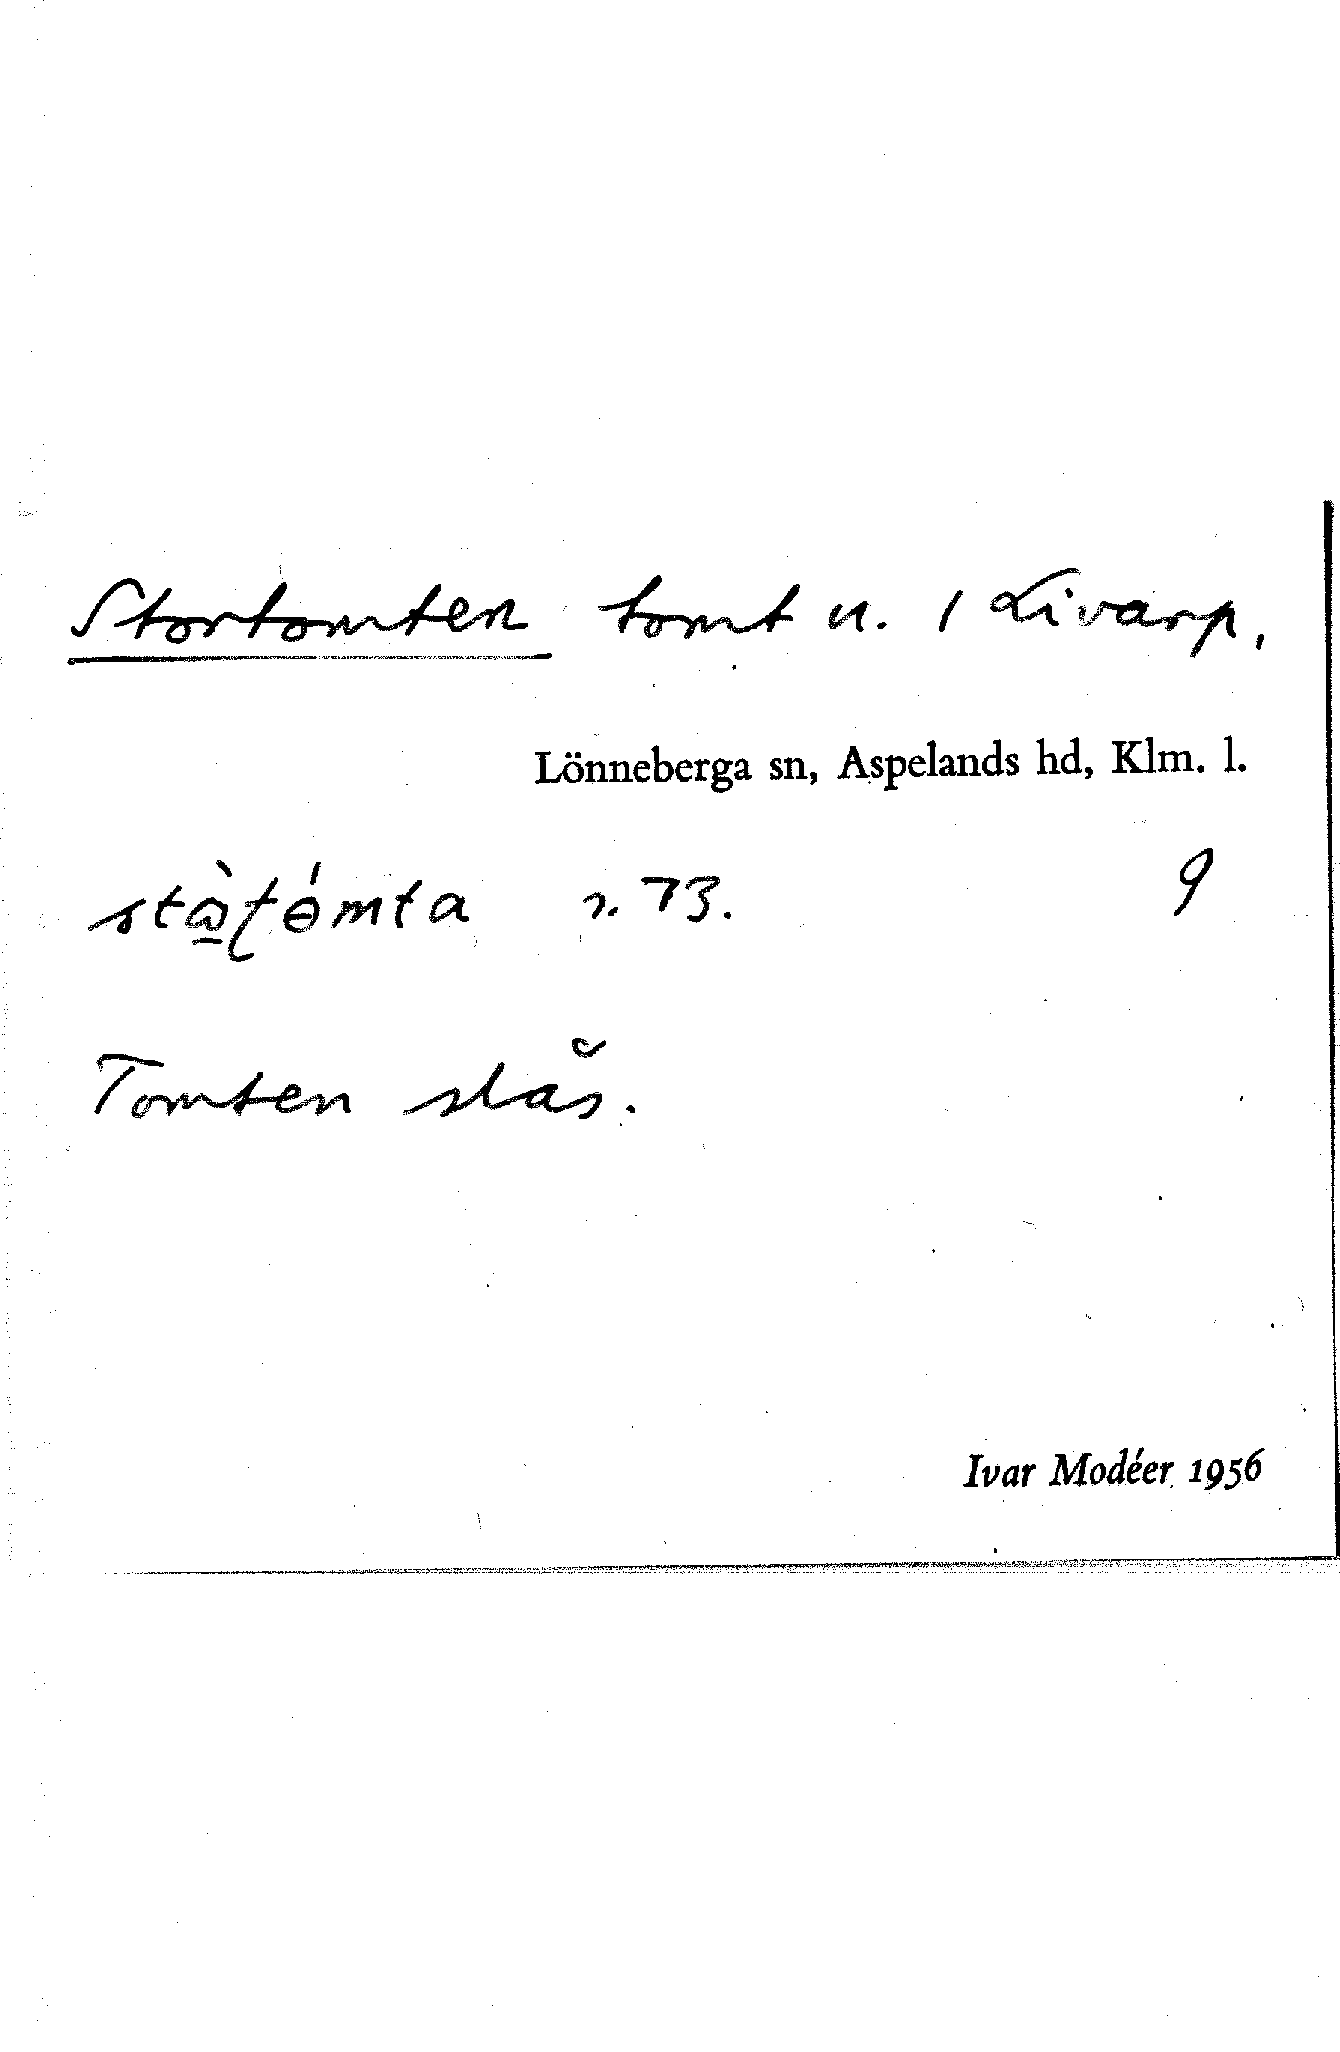 Stortomten tomt u. 1 Livarp,
Lönneberga sn, Aspelands hd, Klm. l.
stà̱ƭémta r. 73. 9
Tomten slås.
Ivar Modéer 1956